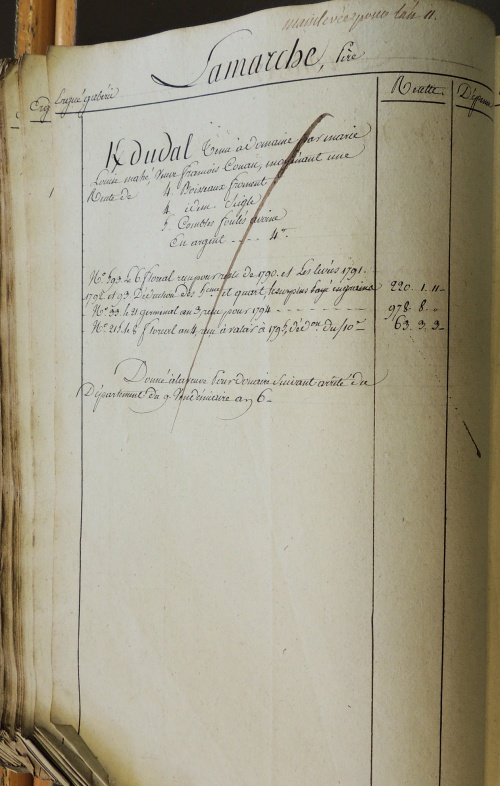 mainlevée pour l'an 11.
Lamarche, Pre
Ergué gabéric
Recette
Dépense
K dudal Tenu à domaine par marie
Louise mahé, veuve françois Conan, moyenant une
Rente de 4 Boisseaux froment
4 idem Seigle
5 Combles foulés avoine
En argent - - - - 4tt
No 593 Le 6 floreal reçu pour reste de 1790 et Les levées 1791.
1792 et 93. Déduction des 5eme et quart, le surplus payé en grains 220. 1. 11
No 33. Le 21 germinal an 3 reçu pour 1794 - - - - - - - 978. 8. "
No 211. Le 8 floreal an 4 reçu à valoir à 1795, déd.on du /10e 63. 3. 3
Donné à la veuve Pour domaine Suivant arrêté du
Département du 9 Vendémiaire an 6